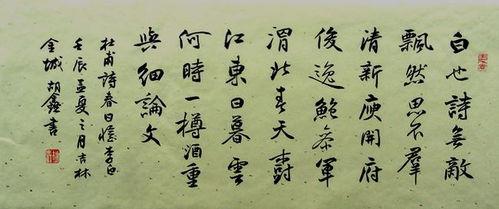 白也詩無敵
飄然思不羣
清新庾開府
俊逸鮑參軍
渭北春天樹
江東日暮雲
何時一樽酒重
與細論文
杜甫詩春日憶李白
壬辰孟夏之月吉林
金城胡鑫書